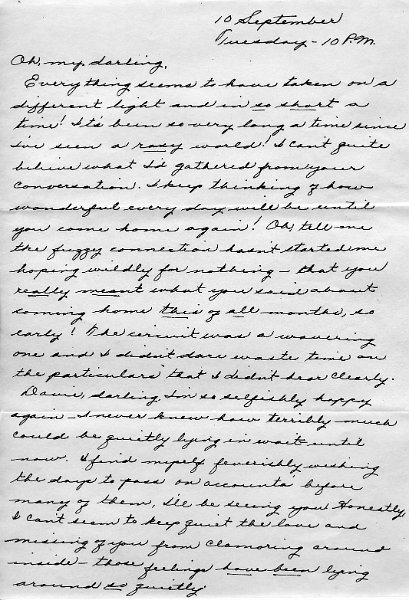 10 September
Tuesday - 10 P.M.
Oh, my darling,
Everything seems to have taken on a
different light and in so short a
time! It's been so very long a time since
I've seen a rosy world! I can't quite
believe what I'd gathered from your
conversation. I keep thinking of how
wonderful every day will be until
you come home again! Oh, tell me
the fuzzy connection hasn't started me
hoping wildly for nothing - that you
really meant what you said about
coming home this of all months, so
early! The circuit was a wavering
one and I didn't dare waste time on
the particulars that I didn't hear clearly.
darling, I'm so selfishly happy
again - I never knew how terribly much
could be quietly lying in wait until
now. I find myself feverishly wishing
the days to pass on accounta' before
many of them, I'll be seeing you. Honestly,
I can't seem to keep quiet the love and
missing of you from clamoring around
inside - those feelings have been lying
around so quietly